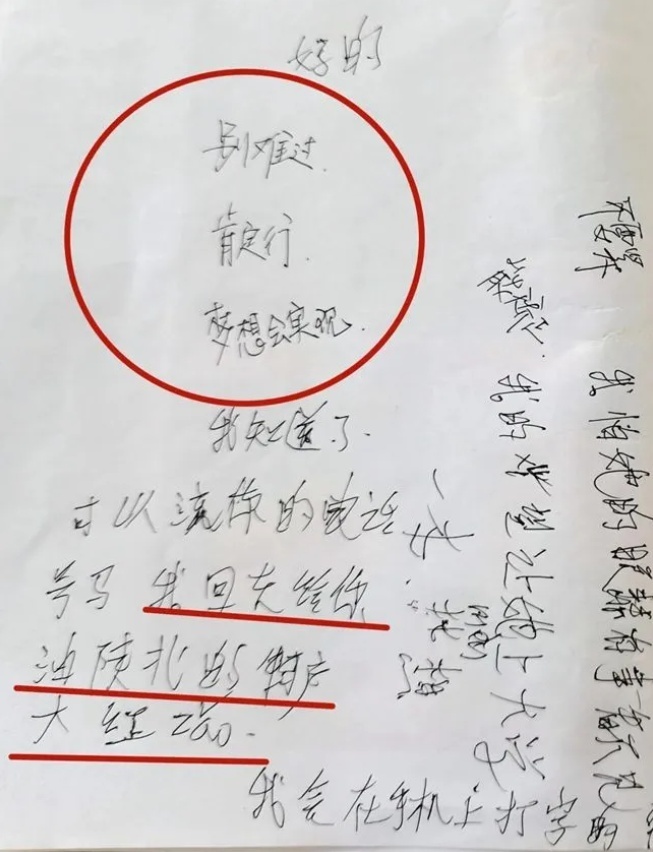 好的
别难过.
肯定行.
梦想会实现.
我知道了.
可以流你的电话
号马 我回去给你
油陕北的特产
大红枣.
我会在手机上打字的
我的梦想让她上大学
我怕她的眼睛有事 看不见